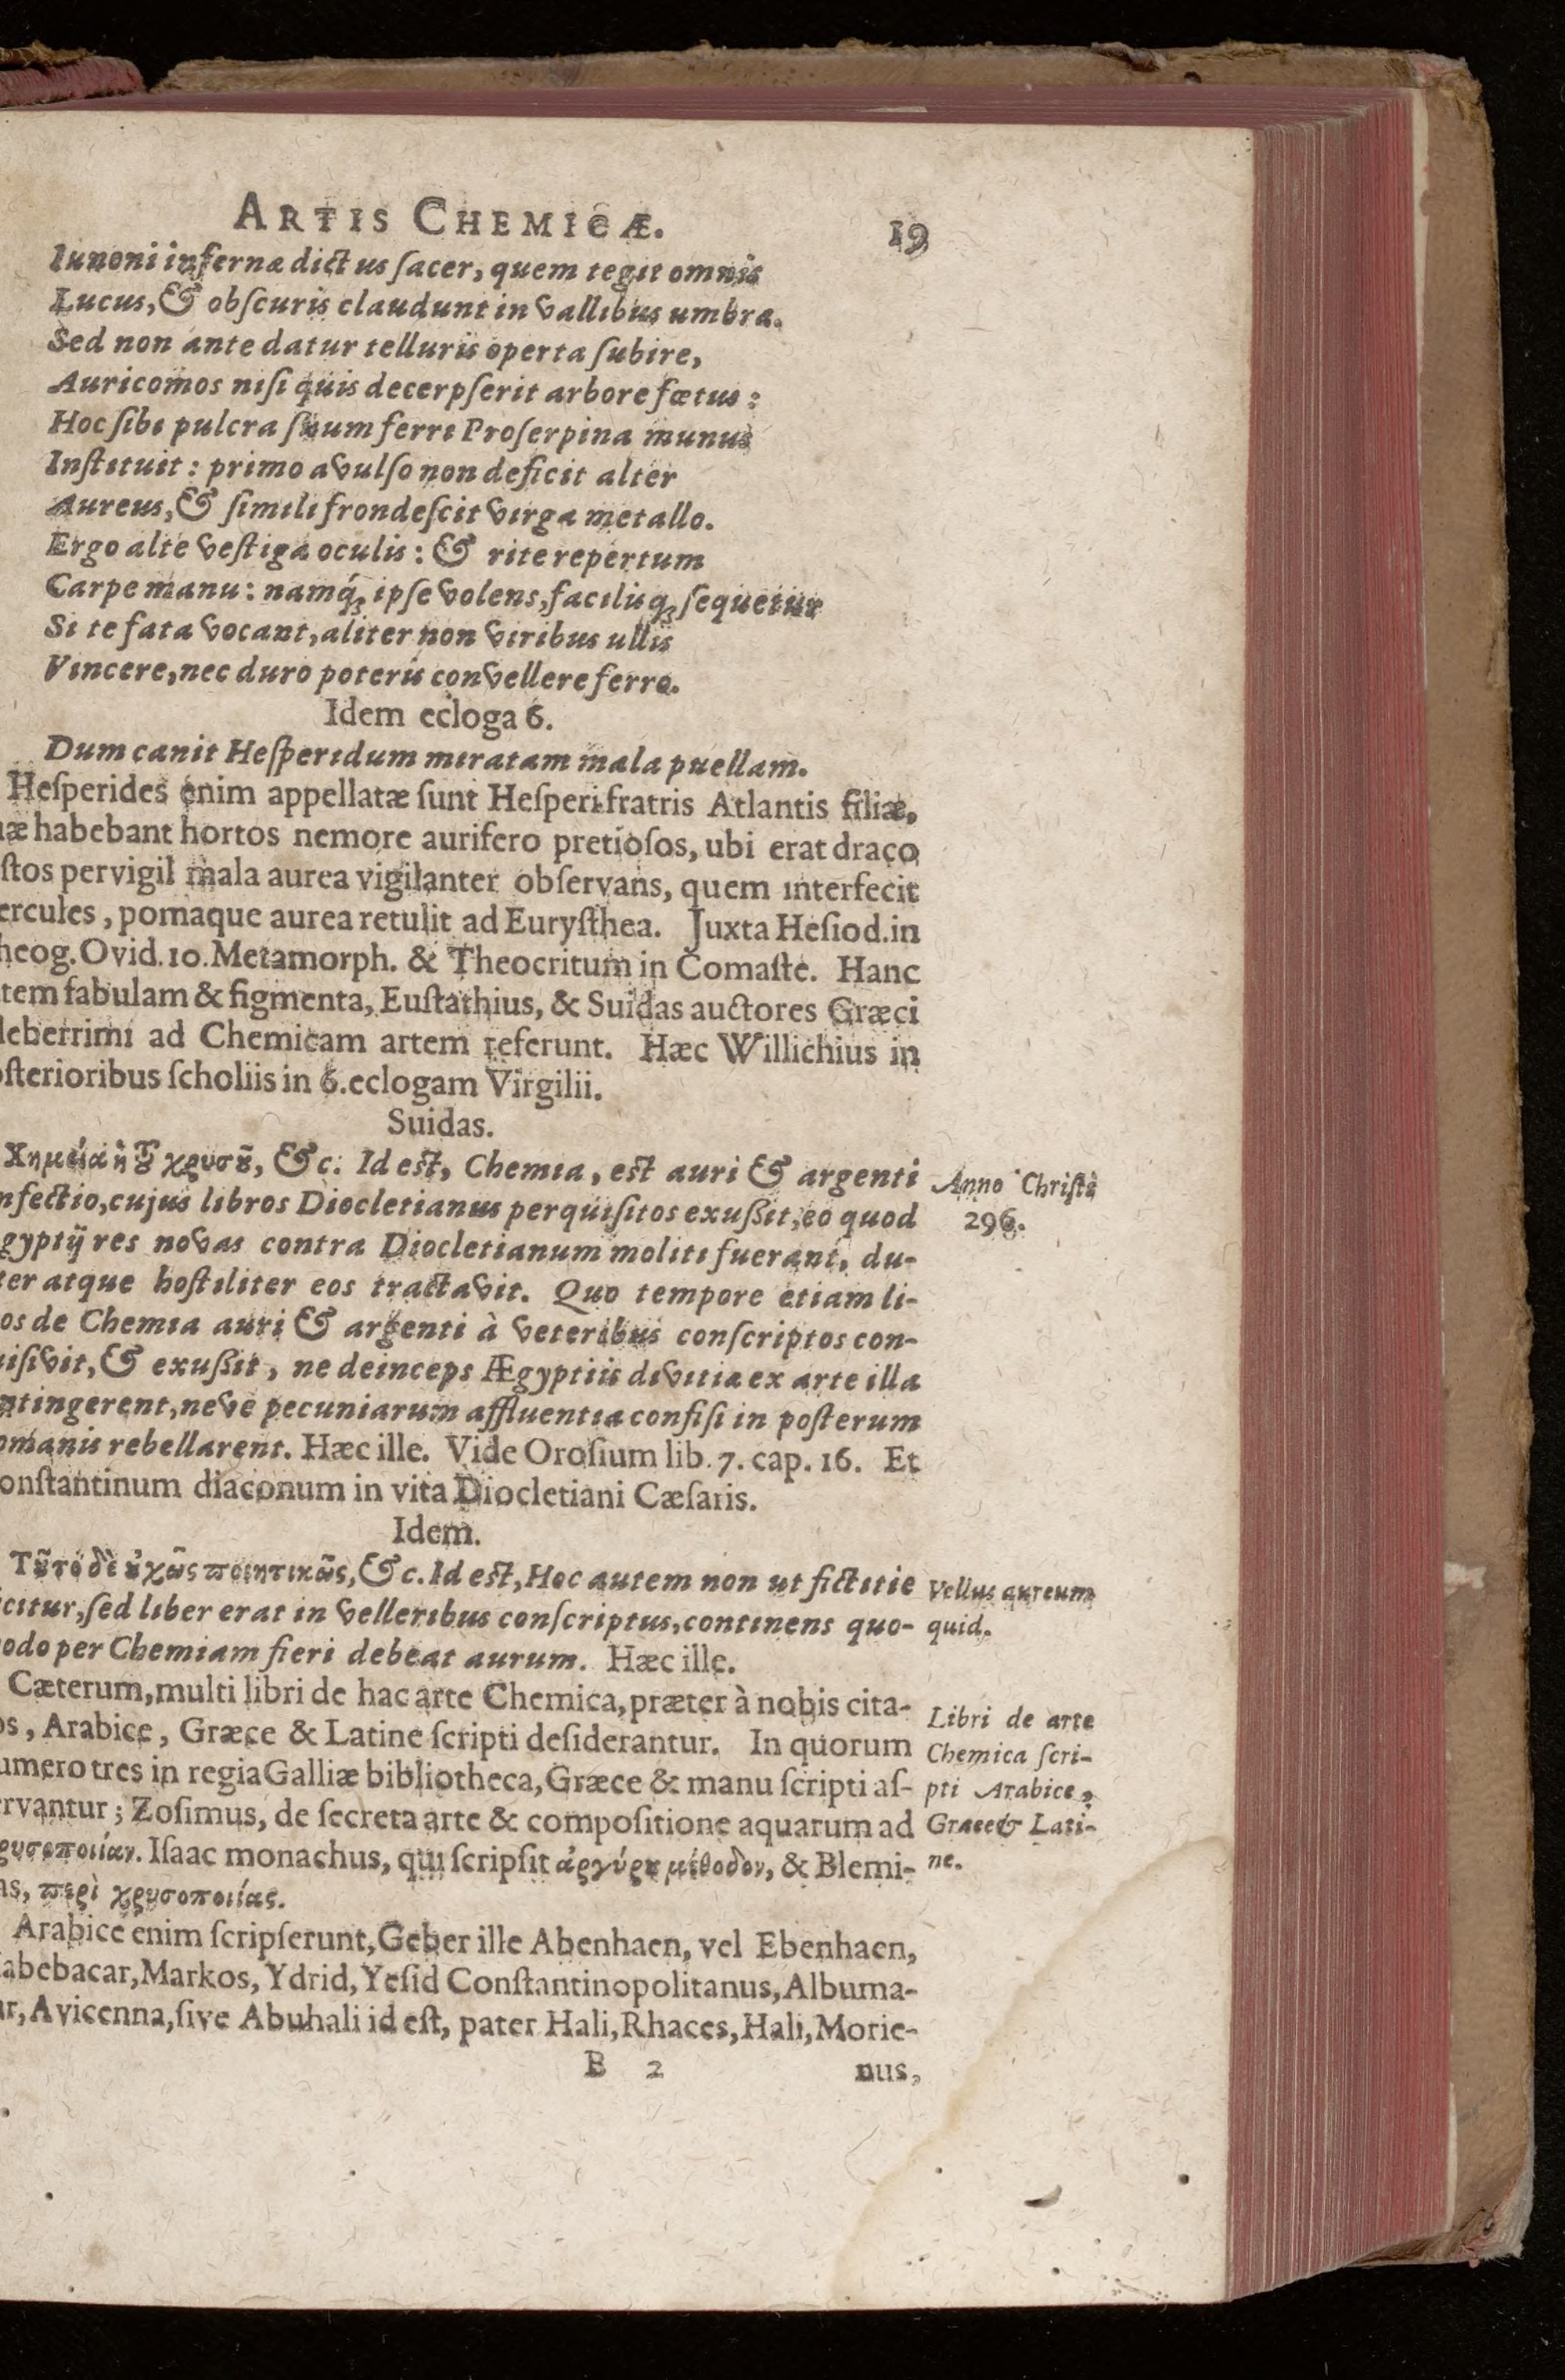 ARTIS CHEMICÆ. 19
Iunoni infernæ dictus sacer, quem tegit omnis
Lucus, & obscuris claudunt in vallibus umbræ.
Sed non ante datur telluris operta subire,
Auricomos nisi quis decerpserit arbore fœtus:
Hoc sibi pulcra suum ferri Proserpina munus
Instituit: primo avulso non deficit alter
Aureus, & simili frondescit virga metallo.
Ergo alte vestiga oculis: & rite repertum
Carpe manu: namq́; ipse volens, facilisq; sequetur
Si te fata vocant, aliter non viribus ullis
Vincere, nec duro poteris convellere ferro.
Idem ecloga 6.
Dum canit Hesperidum miratam mala puellam.
Hesperides enim appellatæ sunt Hesperi fratris Atlantis filiæ,
æ habebant hortos nemore aurifero pretiosos, ubi erat draco
stos pervigil mala aurea vigilanter observans, quem interfecit
ercules, pomaque aurea retulit ad Eurysthea. Juxta Hesiod. in
heog. Ovid. 10. Metamorph. & Theocritum in Comaste. Hanc
tem fabulam & figmenta, Eustathius, & Suidas auctores Græci
leberrimi ad Chemicam artem referunt. Hæc Willichius in
osterioribus scholiis in 6. eclogam Virgilii.
Suidas.
Χημεία ἡ τȣ͂ χρυσȣ͂, &c. Id est, Chemia, est auri & argenti
nfectio, cujus libros Diocletianus perquisitos exussit, eo quod
gyptij res novas contra Diocletianum moliti fuerant, du-
ter atque hostiliter eos tractavit. Quo tempore etiam li-
os de Chemia auri & argenti à veteribus conscriptos con-
uisivit, & exussit, ne deinceps Ægyptiis divitiæ ex arte illa
ntingerent, neve pecuniarum affluentia confisi in posterum
omanis rebellarent. Hæc ille. Vide Orosium lib. 7. cap. 16. Et
onstantinum diaconum in vita Diocletiani Cæsaris.
Anno Christi
296.
Idem.
Τȣ͂το δὲ ȣ̓χ ὡς ποιητικῶς, &c. Id est, Hoc autem non ut fictitie
icitur, sed liber erat in velleribus conscriptus, continens quo-
odo per Chemiam fieri debeat aurum. Hæc ille.
Vellus aureum
quid.
Cæterum, multi libri de hac arte Chemica, præter à nobis cita-
os, Arabice, Græce & Latine scripti desiderantur. In quorum
umero tres in regia Galliæ bibliotheca, Græce & manu scripti as-
rvantur; Zosimus, de secreta arte & compositione aquarum ad
ρυσοποιίαν. Isaac monachus, qui scripsit ἀργύρȣ μέθοδον, & Blemi-
as, περὶ χρυσοποιίας.
Libri de arte
Chemica scri-
pti Arabice,
Græce & Lati-
ne.
Arabice enim scripserunt, Geber ille Abenhaen, vel Ebenhaen,
abebacar, Markos, Ydrid, Yesid Constantinopolitanus, Albuma-
ar, Avicenna, sive Abuhali id est, pater Hali, Rhaces, Hali, Morie-
B 2 nus,